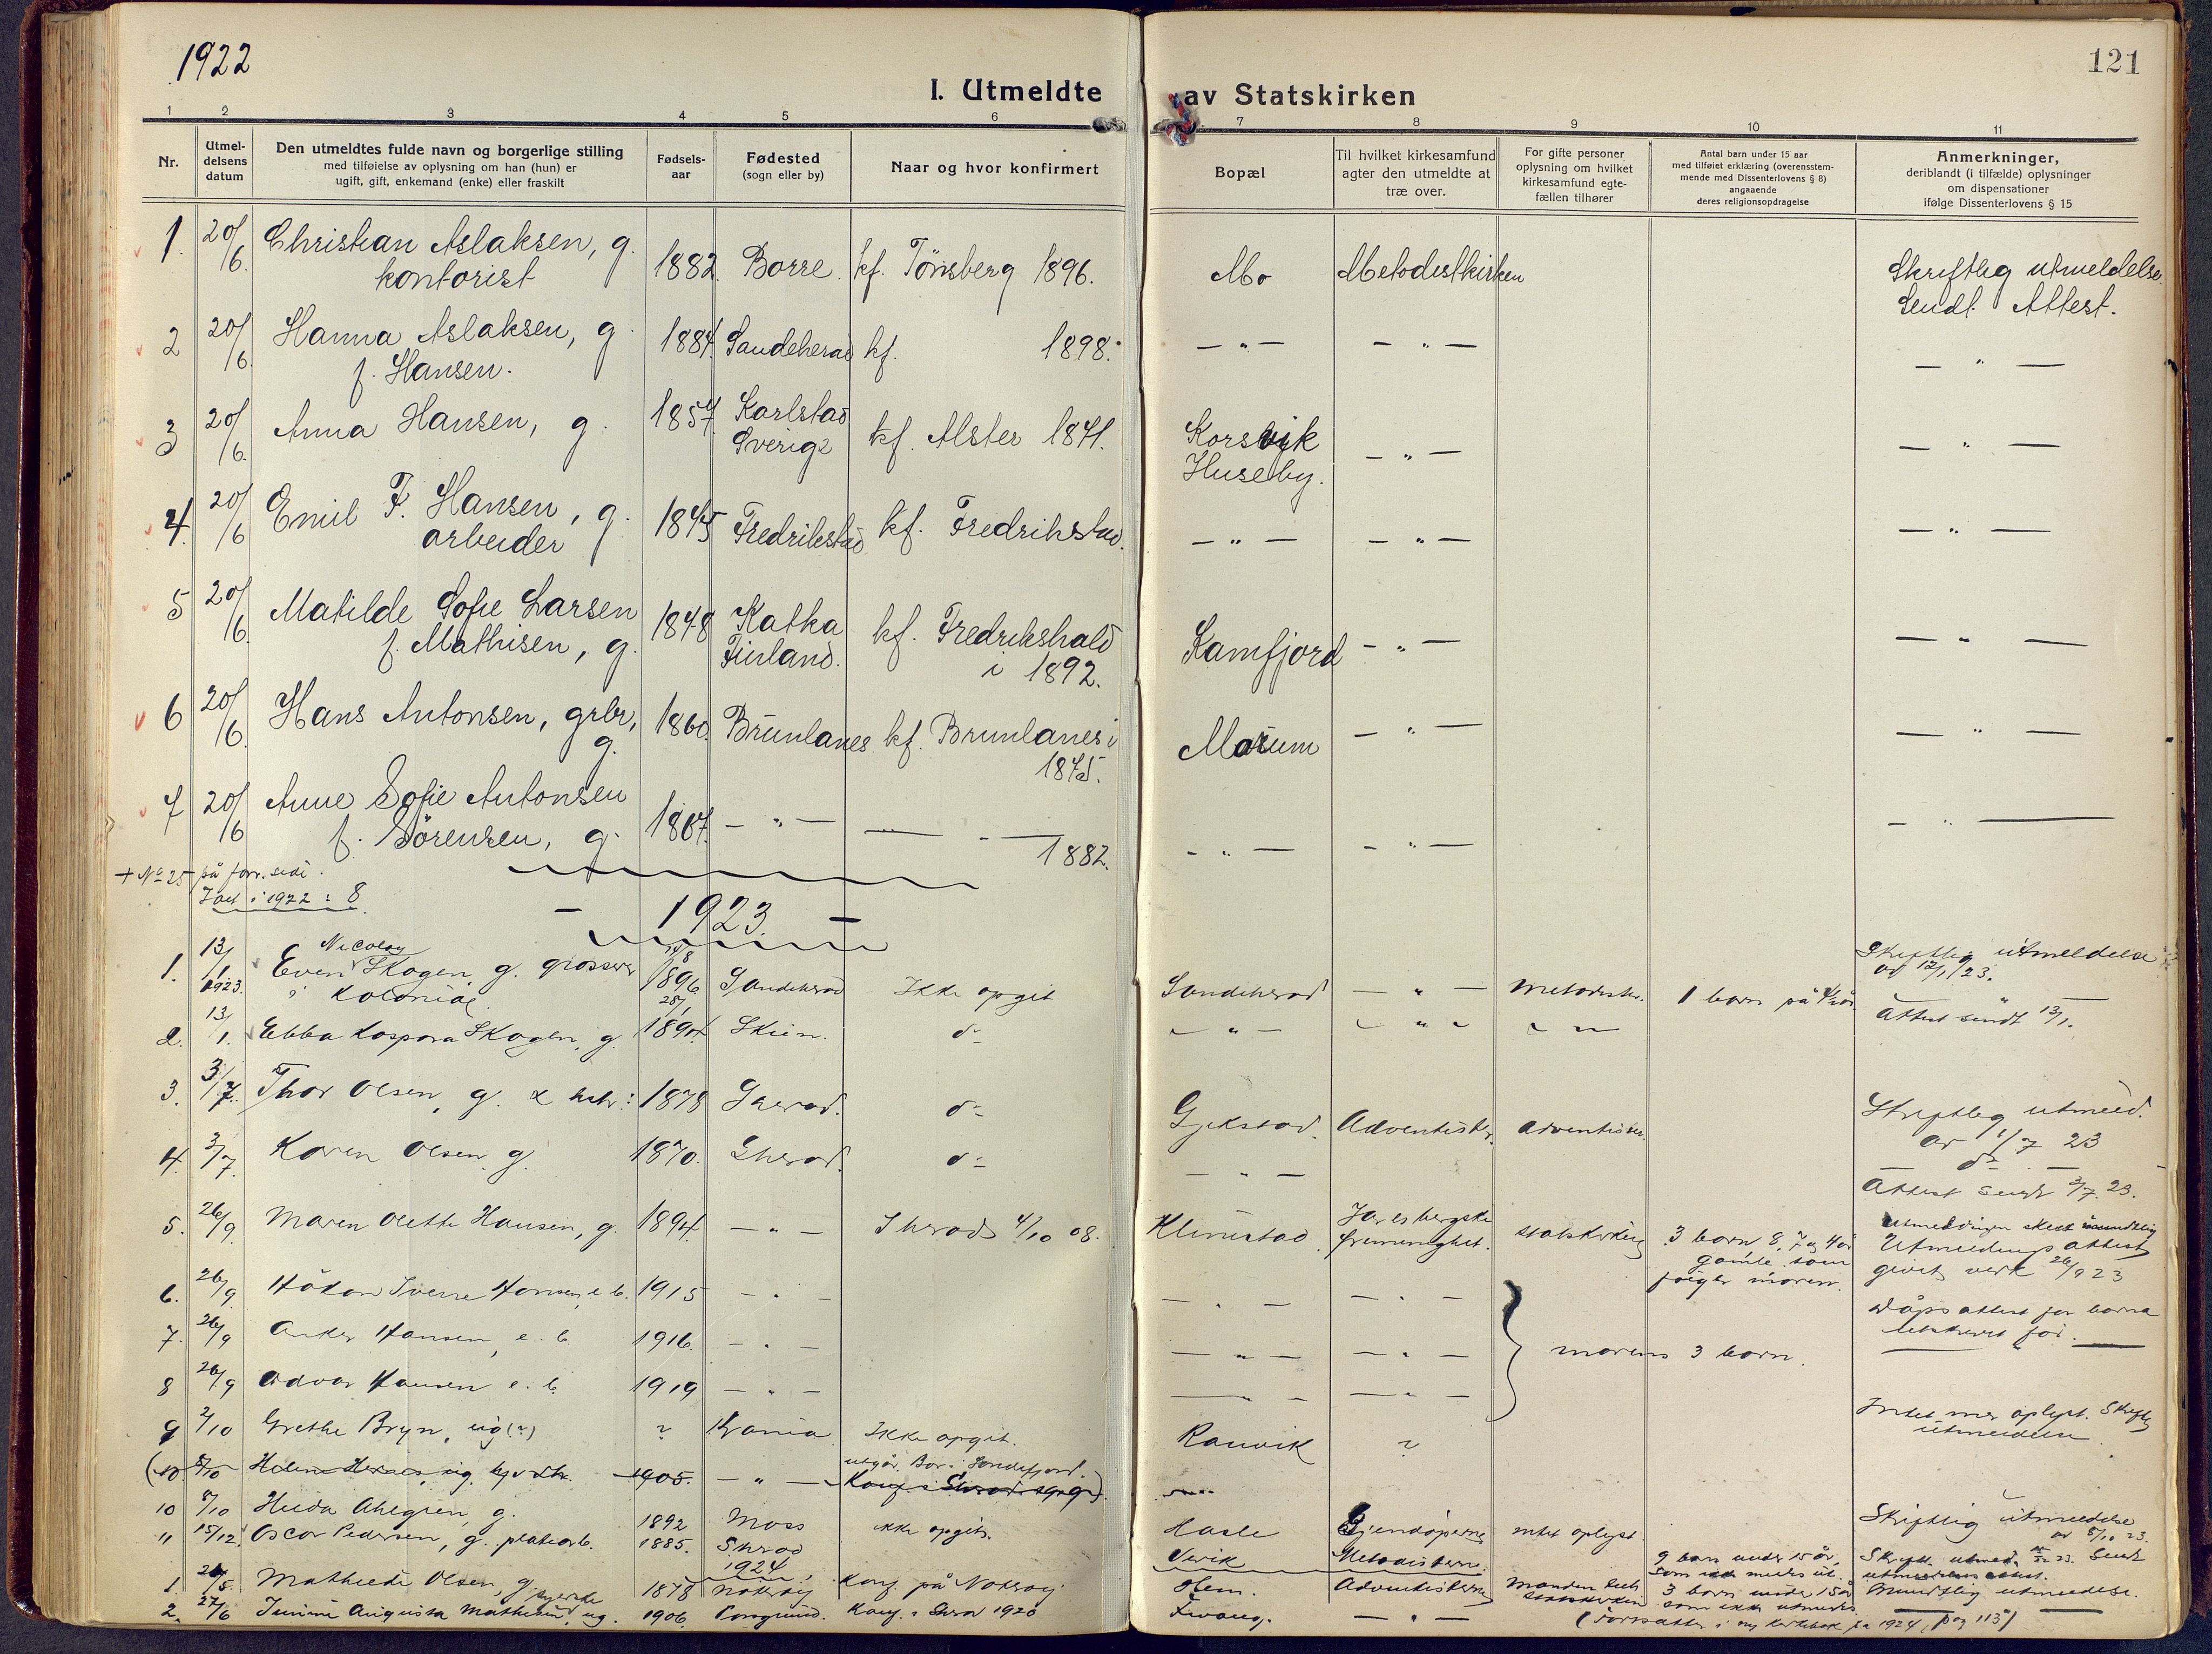 1922
121
I. Utmeldte av Statskirken
1 2 3 4 5 6 7 8 9 10 11
Nr.
Utmel-
delsens
datum
Den utmeldtes fulde navn og borgerlige stilling
med tilføielse av oplysning om han (hun) er
ugift, gift, enkemand (enke) eller fraskilt
Fødsels-
aar
Fødested
(sogn eller by)
Naar og hvor konfirmert
Bopæl
Til hvilket kirkesamfund
agter den utmeldte at
træ over.
For gifte personer
oplysning om hvilket
kirkesamfund egte-
fællen tilhører
Antal barn under 15 aar
med tilføiet erklæring (overensstem-
mende med Dissenterlovens § 8)
angaaende
deres religionsopdragelse
Anmerkninger,
deriblandt (i tilfælde) oplysninger
om dispensationer
ifølge Dissenterlovens § 15
1. 20/6. Christian Aslaksen, g. 1882. Borre. kf. Tønsberg 1896. Mo Metodistkirken Skriftlig utmeldelse.
kontorist Sendt Attest.
2 20/6. Hanna Aslaksen, g. 1884. Sandeherad kf. 1898. — " — — " — — " —
f. Hansen.
3 20/6. Anna Hansen, g. 1857 Karlstad kf. Alster 1871. Korsvik — " — — " —
Sverige Huseby.
4. 20/6 Emil F. Hansen, g. 1845 Fredrikstad kf. Fredrikstad. — " — — " — — " —
arbeider
5 20/6. Matilde Sofie Larsen 1848 Kotka kf. Fredrikshald Kamfjord — " — — " —
f. Mathisen, g. Finland. i 1892.
6 20/6. Hans Antonsen, grbr, 1860. Brunlanes kf. Brunlanes i Morum — " — — " —
g. 1875.
7 20/6 Anne Sofie Antonsen 1867. — " — — " — — " — — " — — " —
f. Sörensen, g. 1882.
+ No 25 på forr. side.
i 1922 : 8
— 1923. —
Nicolay
1. 13/1 1923. Even Skogen, g. grosserer 14/8 1896 Sandeherad Ikke opgit Sandeherad — " — Metodister. 1 barn på Skriftlig utmeldelse
i kolonial av 12/1 23.
2. 13/1. Ebba Kaspara Skogen, g. 28/1 1894 Skien. do — " — — " — Attest sendt 13/1.
3. 3/7. Thor Olsen, g. 1878 Sherad. do Gjekstad. Adventister. Adventister. Skriftlig utmeld.
av 1/7 23
4. 3/7. Karen Olsen, g. 1870. Sherad. do — " — do
Attest sendt 3/7. 23.
5. 26/9. Maren Olette Hansen, g. 1894. — " — Sherad 4/10 08. Klinestad. Jarlsbergske statskirken 3 barn 8, 7 og 4 år Utmeldingen skedt mundtlig
frimenighet. gamle som Utmeldings attest
følger moren. givet 26/9 23
6. 26/9. Håkon Sverre Hansen, e. b. 1915 — " — — " — — " — Dåps attest for barna
7. 26/9 Hansen, e. b. 1916. — " — — " — — " — morens 3 barn.
8 26/9 Odvar Hansen e. b. 1919 — " — — " — — " —
9 2/10 Grethe Bryn, ug (?) ? Krania Ikke opgit. Ranvik ? Intet mer oplyst. Skriftlig
utmeldelse
utgår. Bor i Sandefjord.
(10 8/10 ug. 1905. — " — Konf. i Sherad
10 8/10 Hilda Ahlgren, g. 1892 Moss ikke opgit. Hasle intet oplyst. Skriftlig utmeldelse
av 8/10 23.
11 15/12. Oscar Pedersen, g. 1885. Sherad Vesik Metodisterne. 9 barn under 15 år,
som
1924.
1. 26/5. Mathilde Olsen, g. 1878 Nøtterøy Konf. på Nøtterøy Hem. Adventisterne Manden 3 barn under 15 år Mundtlig utmeldelse.
statskirken som ikke utmeldes.
2. 27/6 Augusta Mathisen, ug. 1906. Porsgrund. Konf. i Sherad 1920 — " —
(Fortsættes i ny kirkebok fra 1924, pag 113)